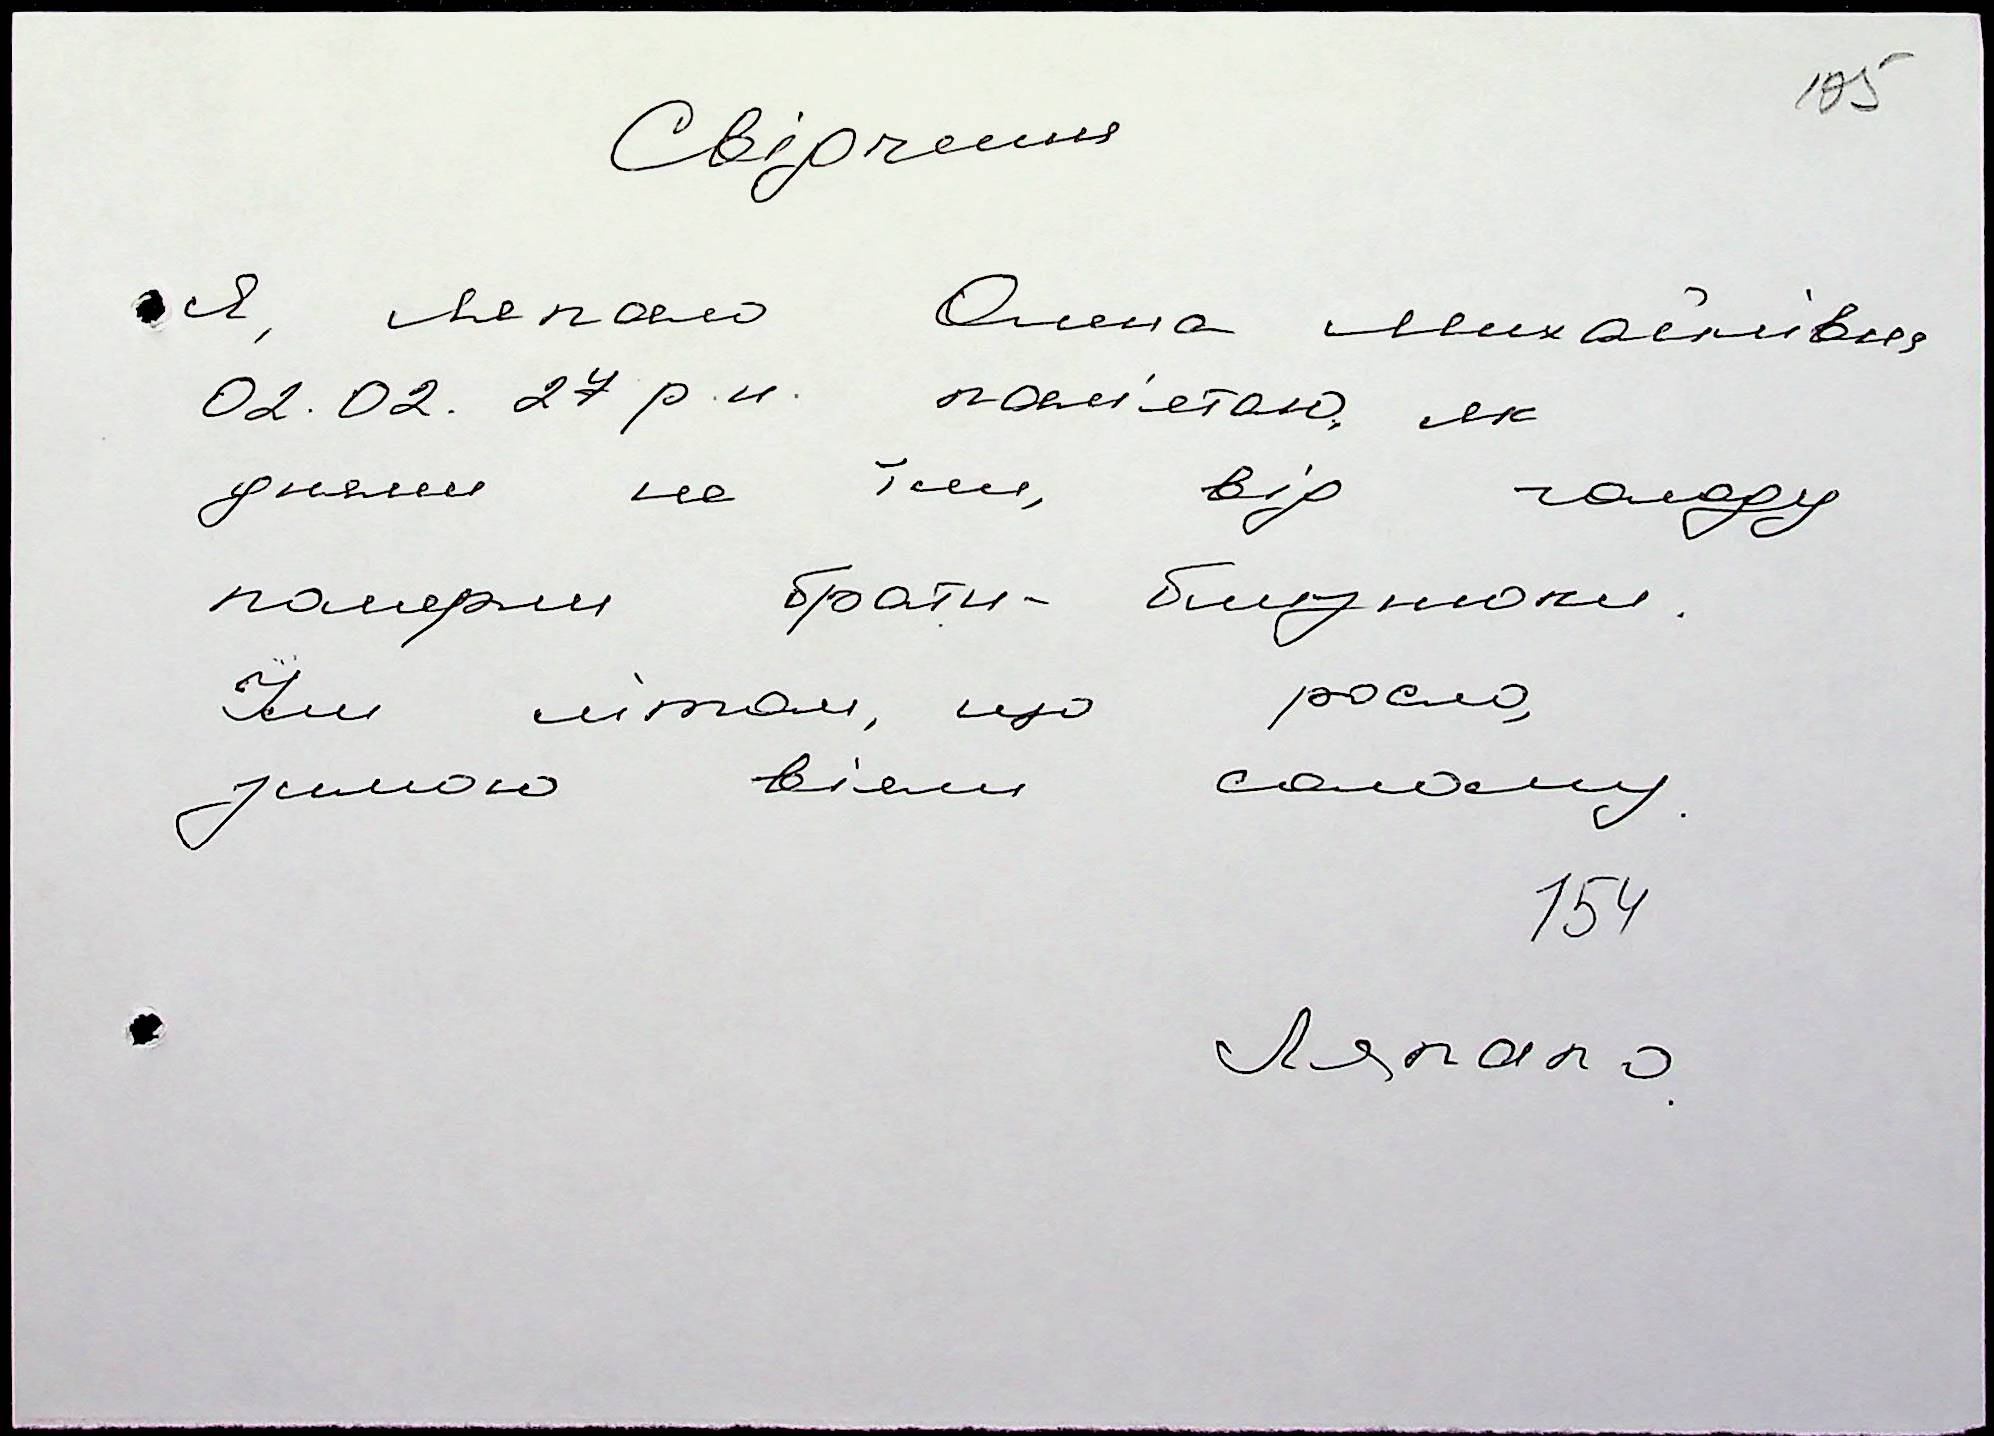 185
Свідчення
Я, Ляпало Олена Михайлівна,
02.02.27 р.н. пам'ятаю, як
днями не їли, від голоду
померли брати-близнюки.
Їли літом, що росло,
зимою віяли солому.
154
Ляпало.